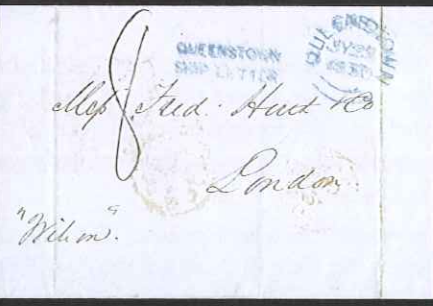 QUEENSTOWN
SHIP LETTER
QUEENSTOWN
8
Mess Fred. Huth & Co
London
"Wilson".